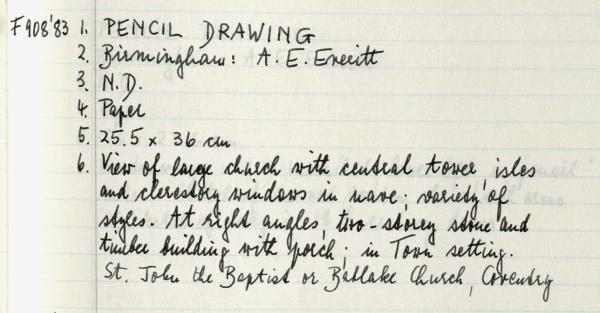 F908'83 1. PENCIL DRAWING
2. Birmingham: A. E. Everitt
3. N.D.
4. Paper
5. 25.5 x 36 cm
6. View of large church with central tower, isles
and clerestory windows in nave; variety of
styles. At right angles, two-storey stone and
timber building with porch; in Town setting.
St. John the Baptist or Bablake Church, Coventry